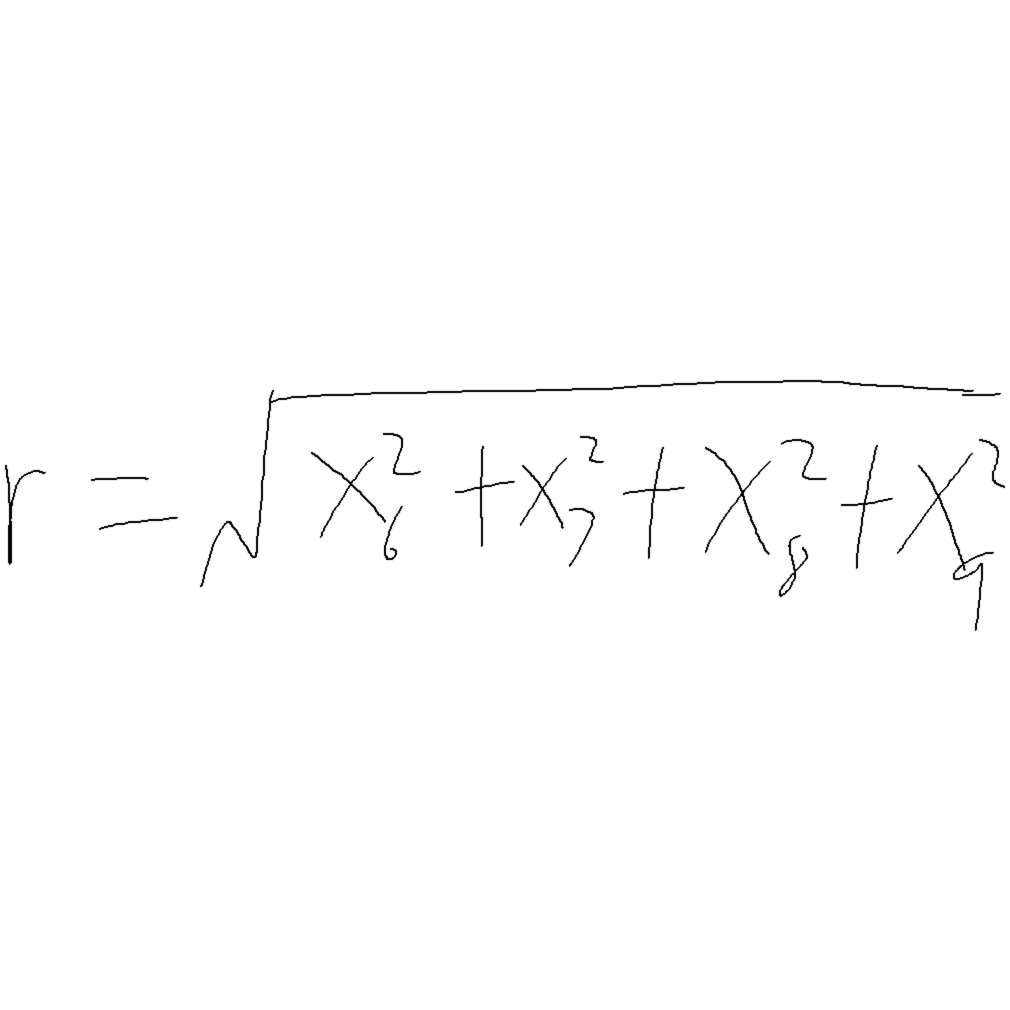 r = √(x₆² + x₇² + x₈² + x₉²)